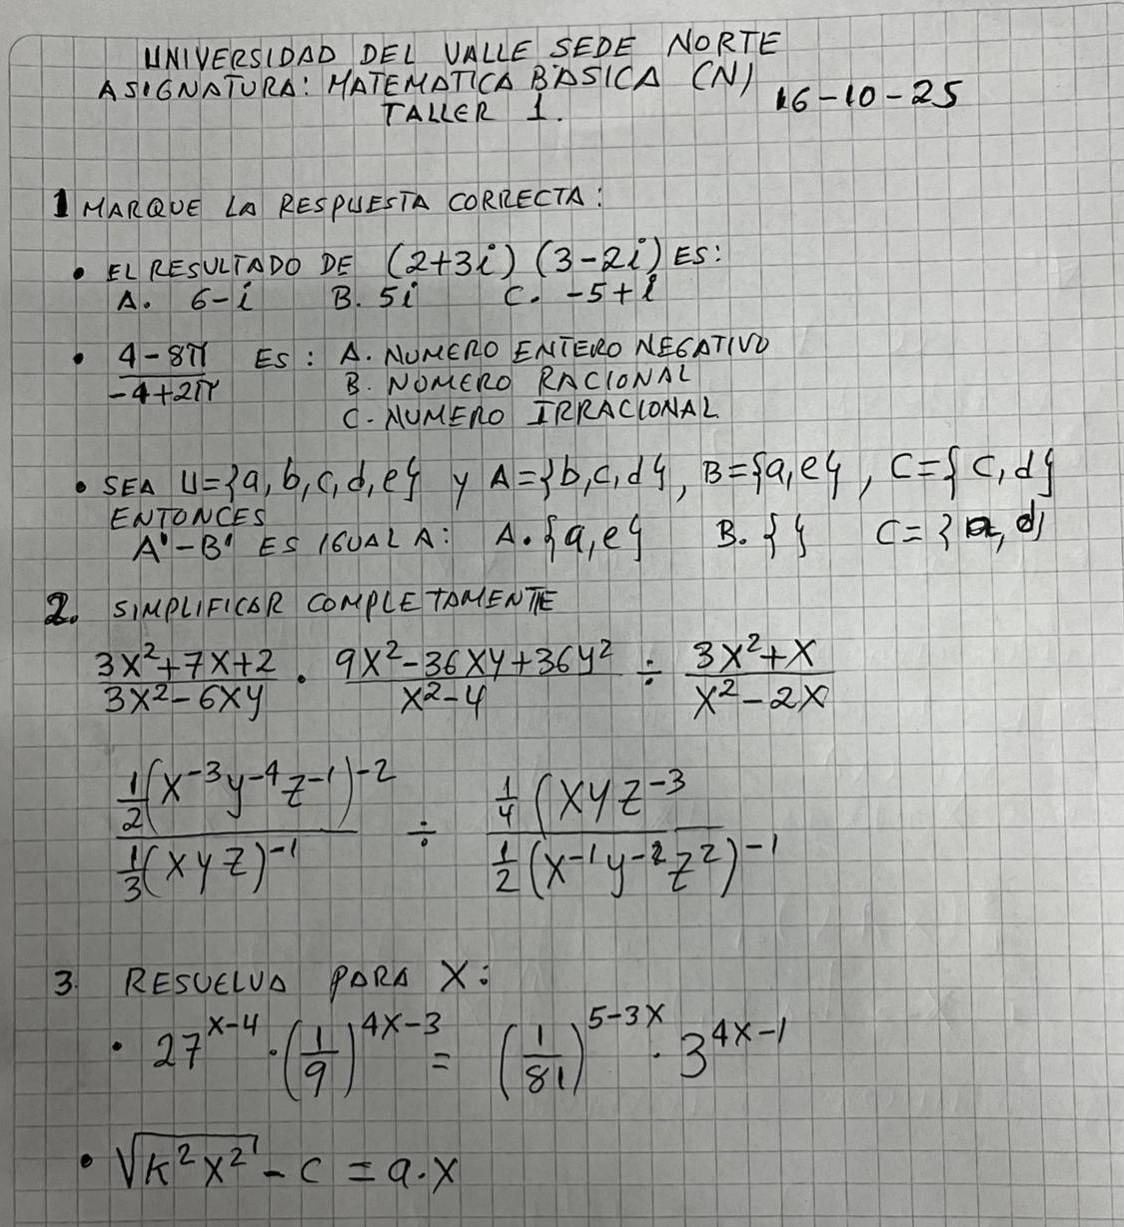 UNIVERSIDAD DEL VALLE SEDE NORTE
ASIGNATURA: MATEMATICA BÁSICA (N)
16-10-25
TALLER 1.
1 MARQUE LA RESPUESTA CORRECTA:
• EL RESULTADO DE (2+3i) (3-2i) ES:
A. 6-i B. 5i C. -5+i
• (4-8π)/(-4+2π) ES: A. NUMERO ENTERO NEGATIVO
B. NUMERO RACIONAL
C. NUMERO IRRACIONAL
• SEA U={a,b,c,d,e} y A={b,c,d}, B={a,e}, C={c,d}
ENTONCES
A'-B' ES IGUAL A: A. {a,e} B. { } C={ , d}
2. SIMPLIFICAR COMPLETAMENTE
(3x²+7x+2)/(3x²-6xy) · (9x²-36xy+36y²)/(x²-4) ÷ (3x²+x)/(x²-2x)
(1/2(x⁻³y⁻⁴z⁻¹)⁻²)/(1/3(xyz)⁻¹) ÷ (1/4(xyz⁻³)/(1/2(x⁻¹y⁻²z²)⁻¹)
3. RESUELVA PARA X:
• 27^(x-4) · (1/9)^(4x-3) = (1/81)^(5-3x) · 3^(4x-1)
• √(k²x²) - c = a·x